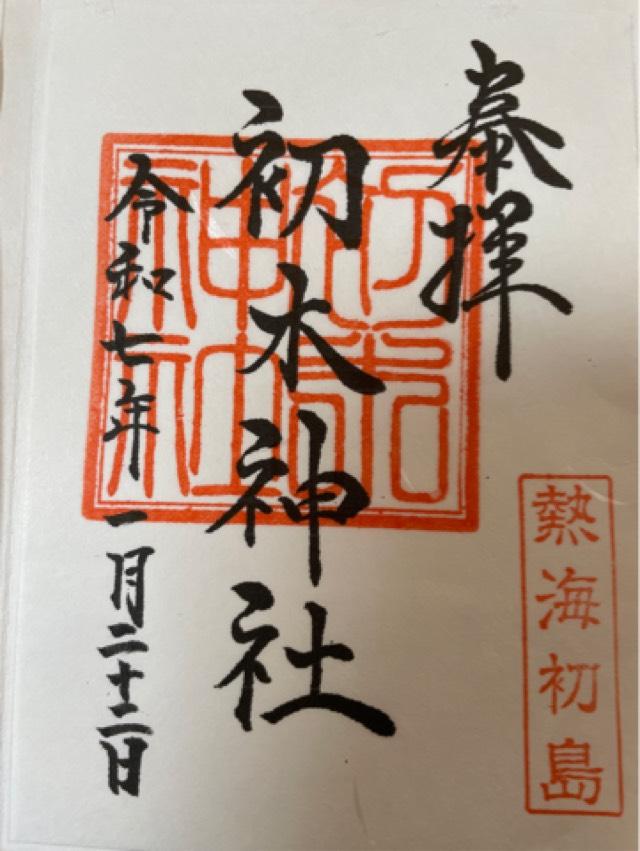 奉拝
初木神社
令和七年一月二十二日
熱海初島